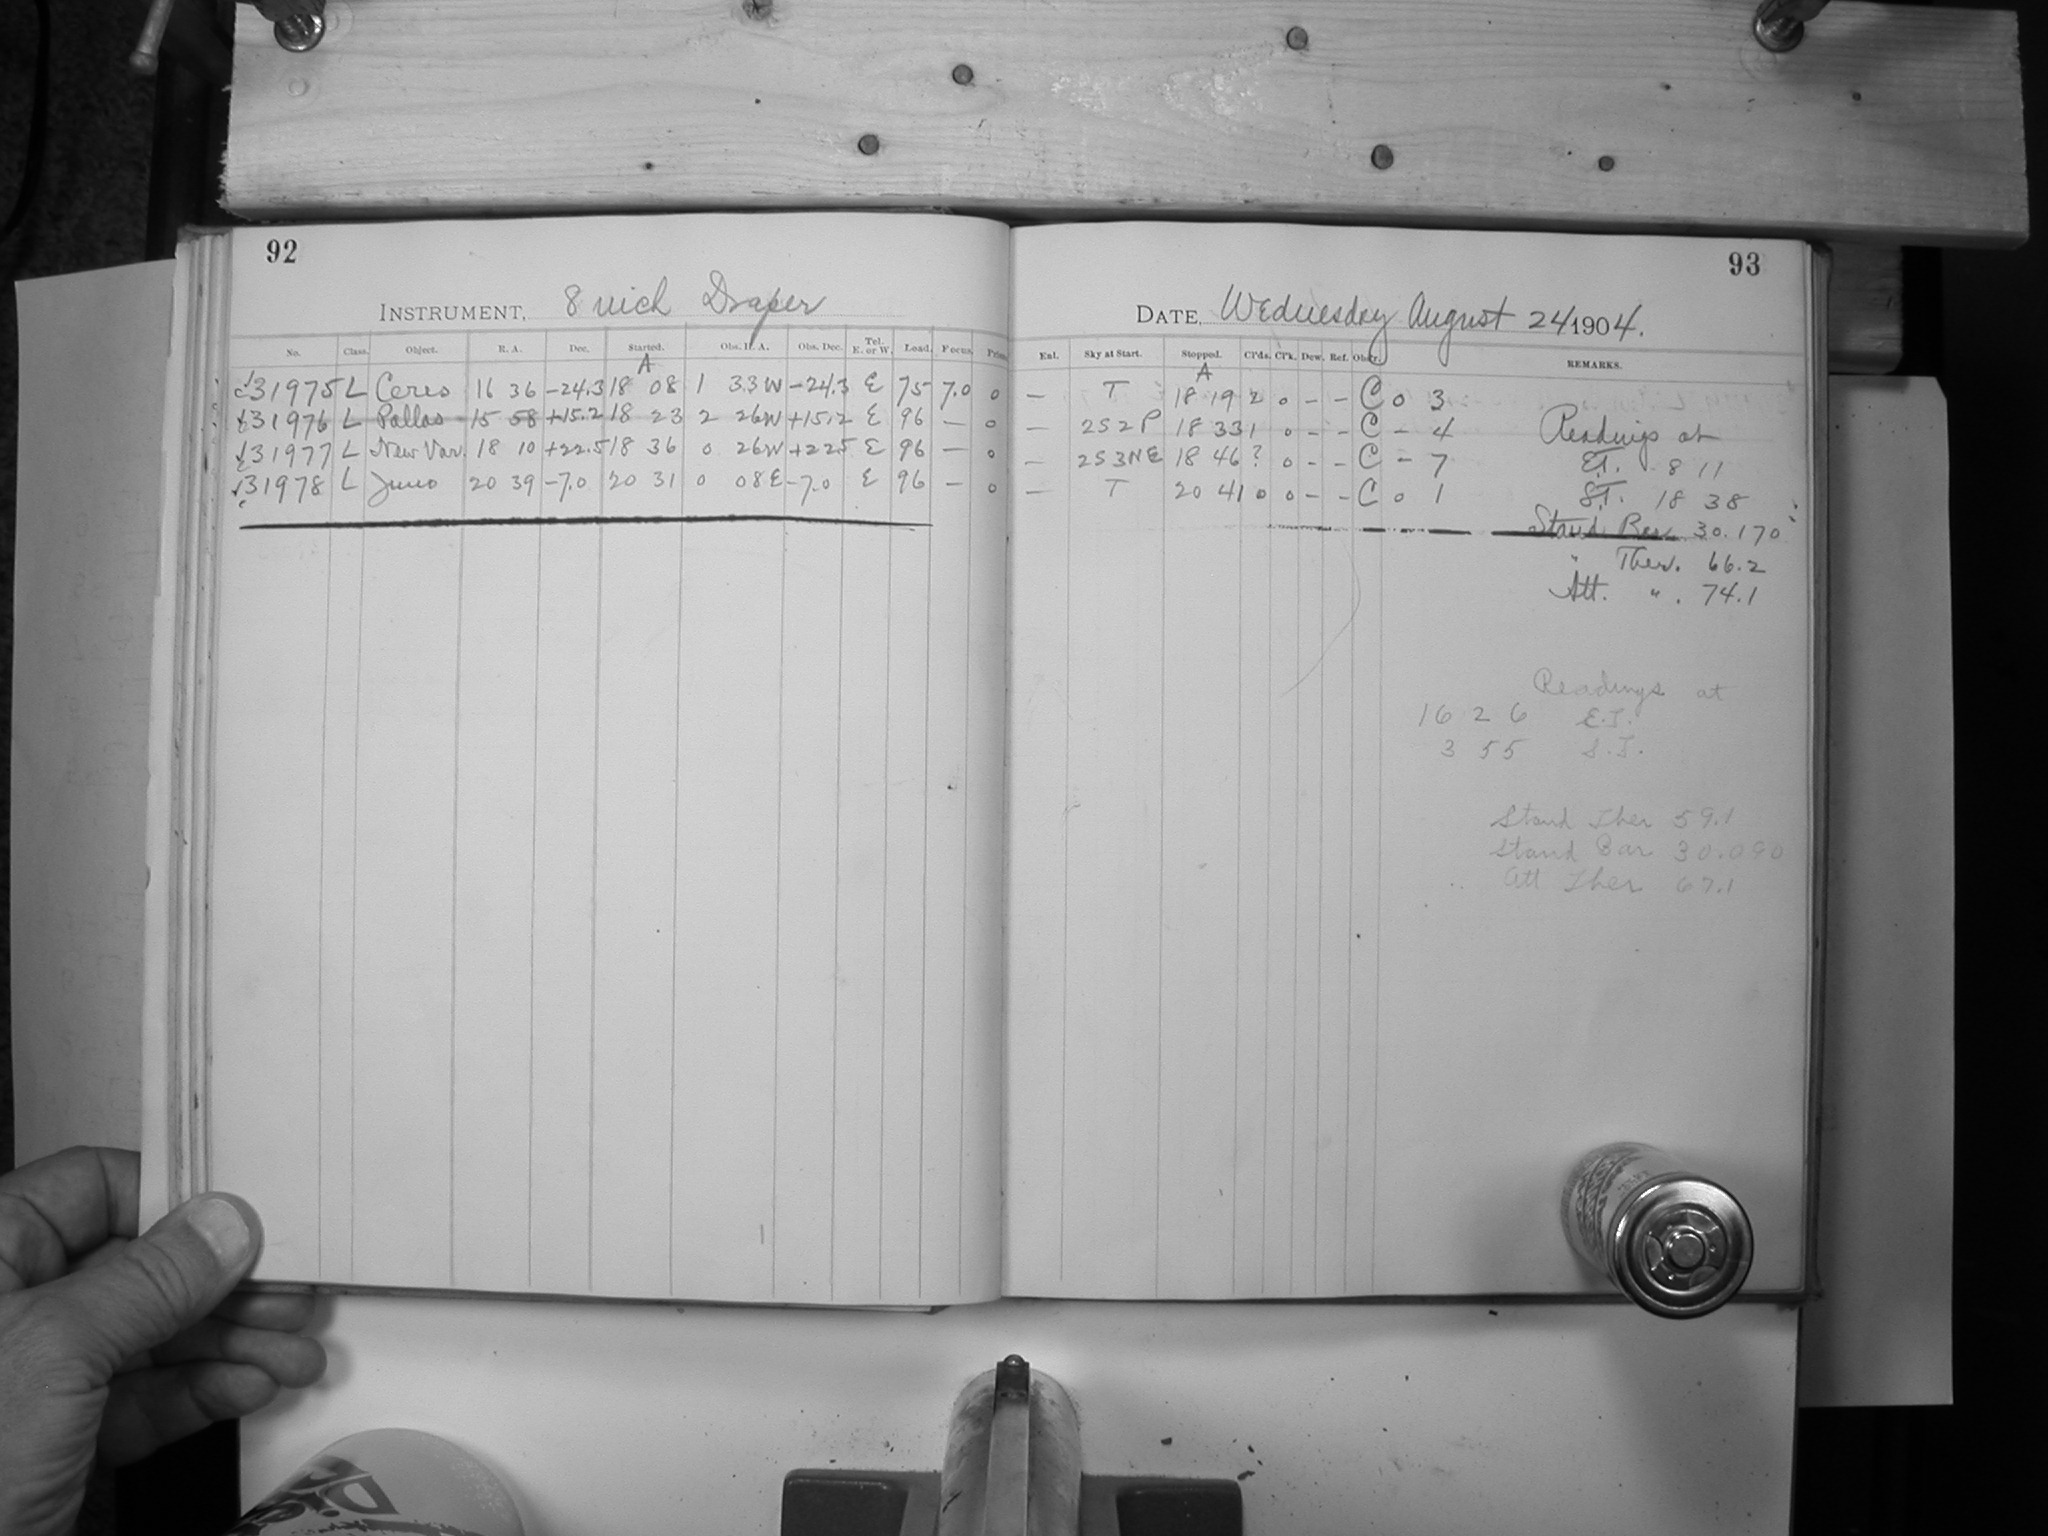 92
INSTRUMENT, 8 inch Draper
No. Class. Object. R. A. Dec. Started. Obs. H. A. Obs. Dec. Tel. E. or W. Lead. Focus. Prism
A
31975 L Ceres 16 36 -24.3 18 08 1 33W -24.3 E 75 7.0 0
31976 L Pallas 15 58 +15.2 18 23 2 26W +15.2 E 96 — 0
31977 L New Var. 18 10 +22.5 18 36 0 26W +225 E 96 — 0
31978 L Juno 20 39 -7.0 20 31 0 08E -7.0 E 96 — 0
93
DATE, Wednesday August 24 1904.
Ext. Sky at Start. Stopped. Cl'ds. Cl'k. Dew. Ref. Obsr. REMARKS.
A
— T 18 19 2 0 - - C 0 3
— 2S2P 18 33 1 0 - - C - 4
— 2S3NE 18 46 ? 0 - - C - 7
— T 20 41 0 0 - - C 0 1
Readings at
E.T. 8 11
S.T. 18 38
Stand. Bar. 30.170
" Ther. 66.2
Att. ". 74.1
Readings at
16 26 E.T.
3 55 S.T.
Stand Ther 59.1
Stand Bar 30.090
Att Ther 67.1